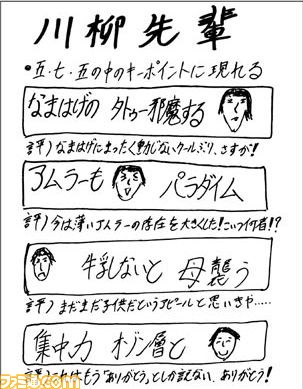 川柳先輩
•五・七・五の中のキーポイントに現れる
なまはげの タトゥー邪魔する
評)なまはげにまったく動じないクールぶり、さすが!
アムラーも パラダイム
評)今は薄いアムラーの存在を大きくした!こいつ何者!?
牛乳しないと 母襲う
評)まだまだ子供だというアピールと思いきや……
集中力 オゾン層と
評)これはもう「ありがとう」としか言えない、ありがとう!
ファミ通.com